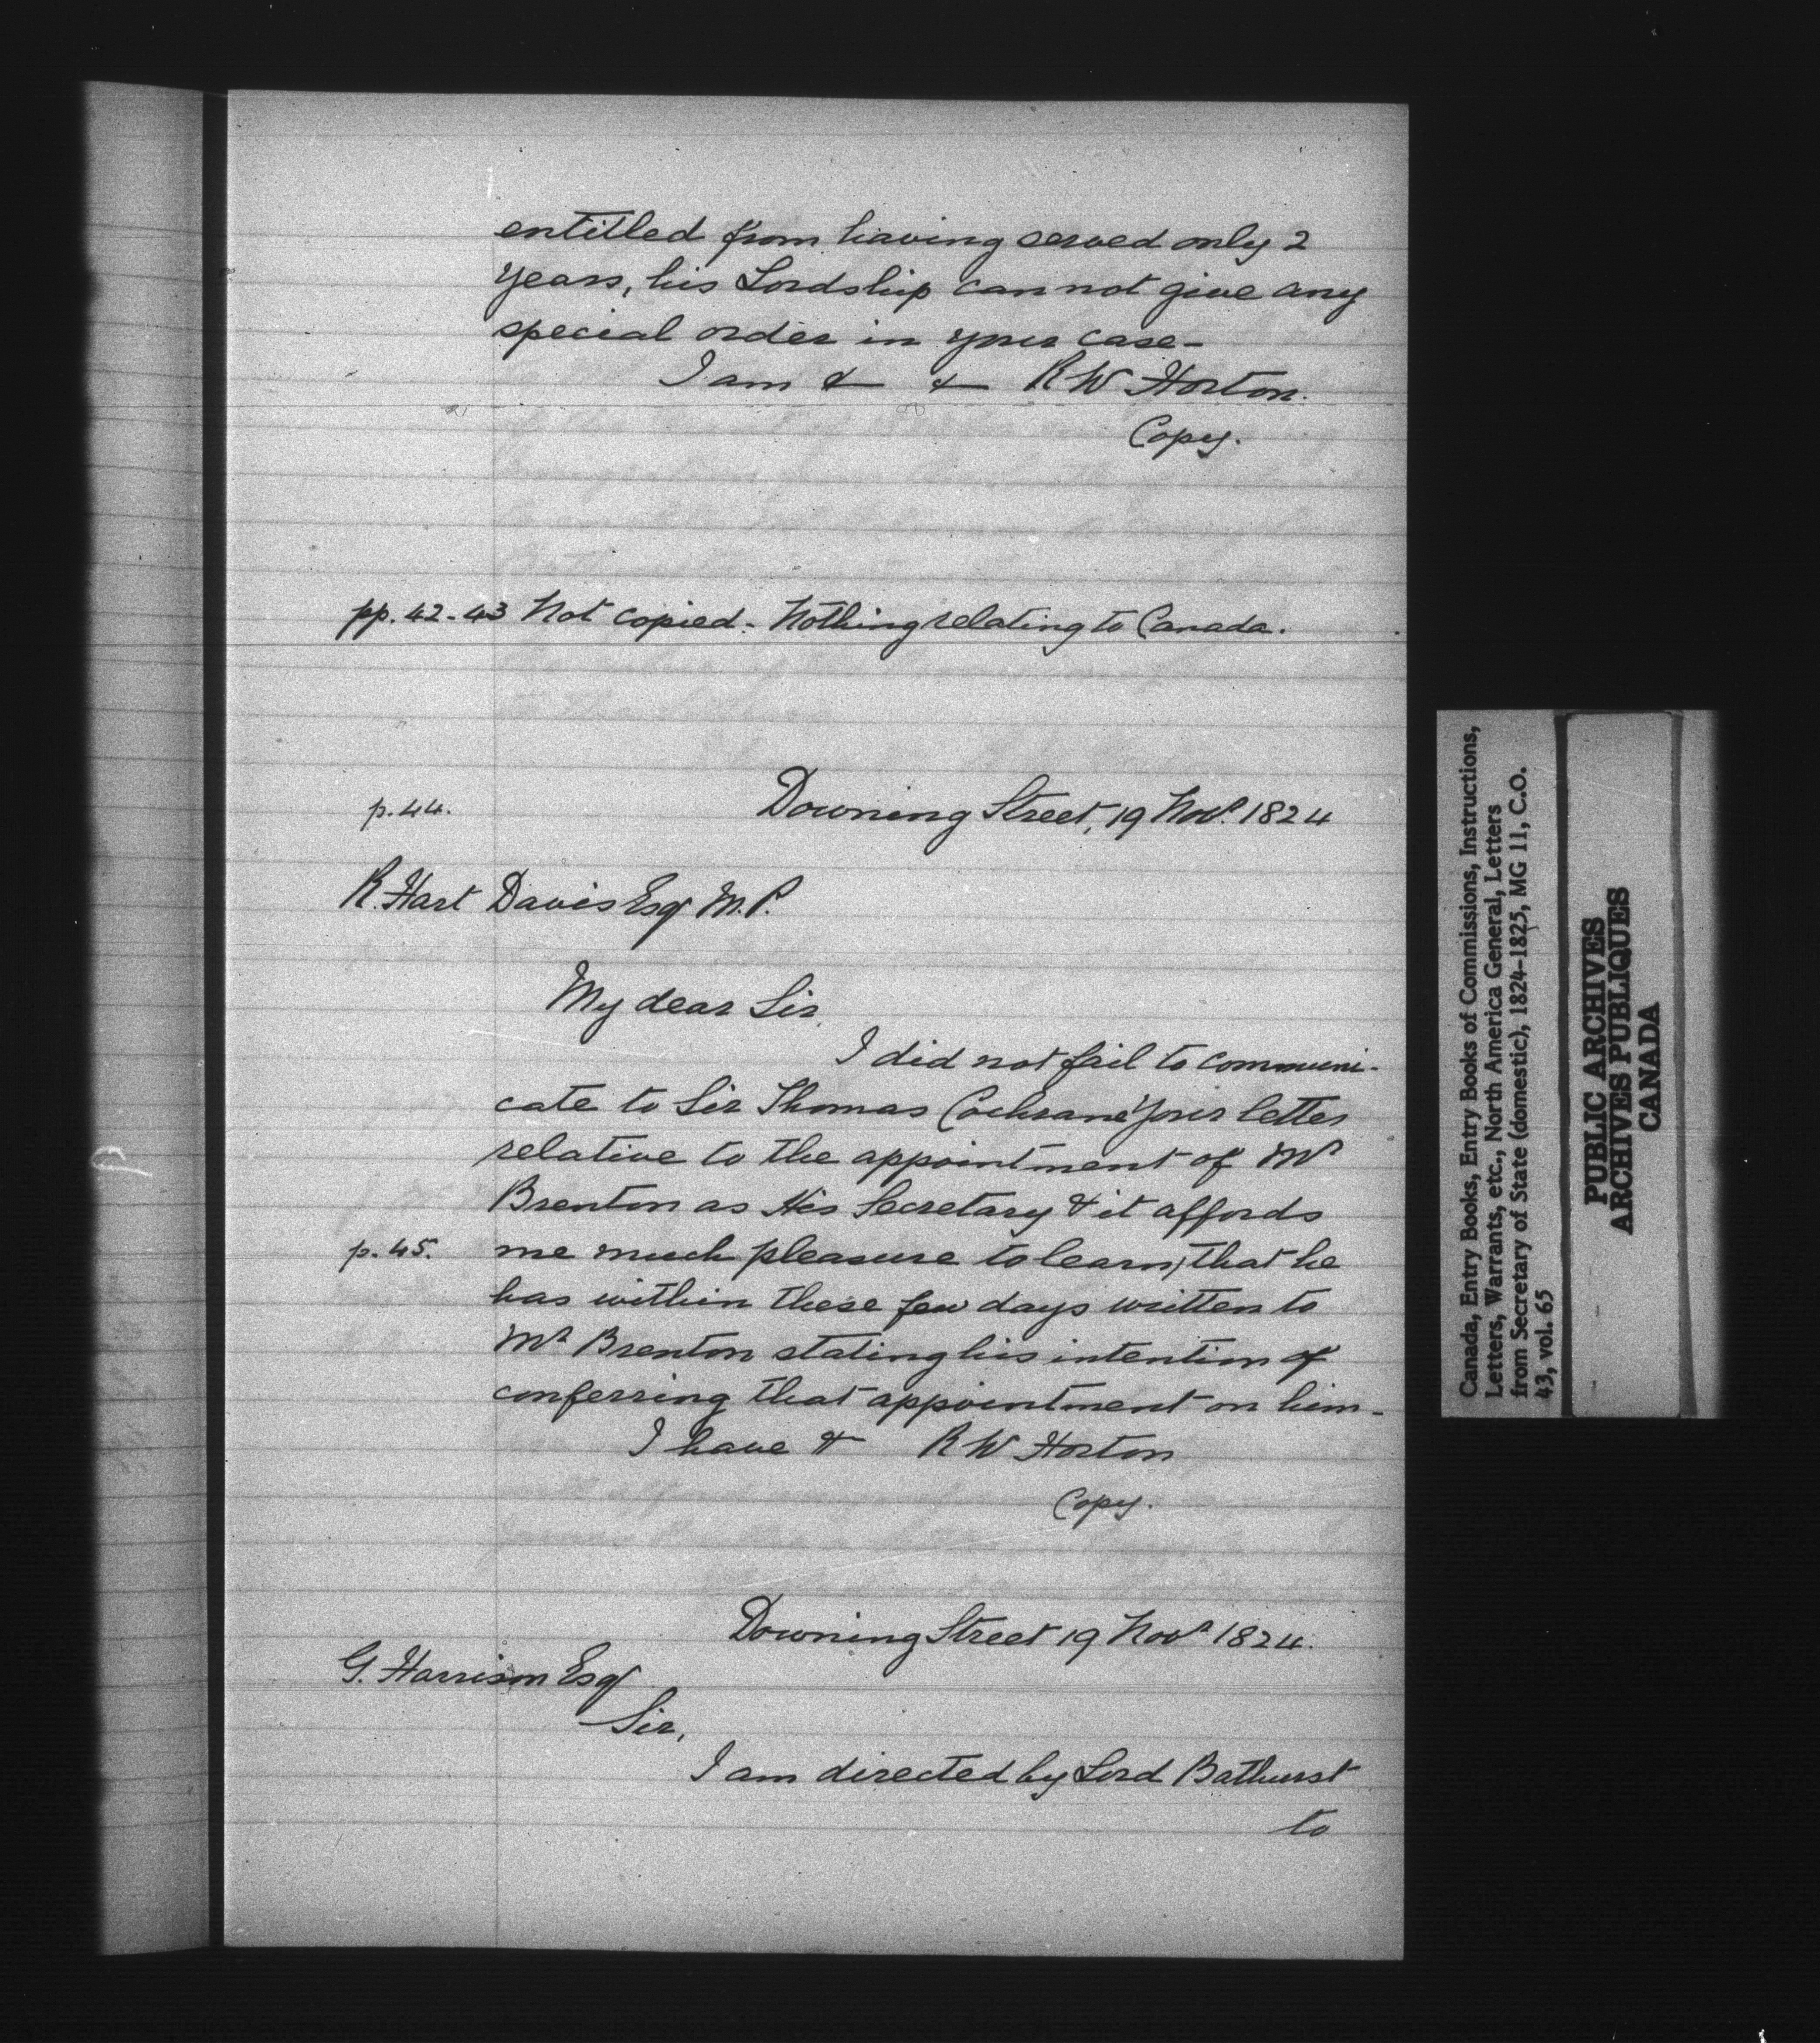 entitled from having served only 2
years, his Lordship cannot give any
special order in your case-
I am & & R W Horton.
Copy.
pp. 42-43 Not copied. Nothing relating to Canada.
p. 44.
Downing Street, 19 Novr. 1824
R. Hart Davis Esqr M. P.
My dear Sir
I did not fail to communi-
cate to Sir Thomas Cochrane your letter
relative to the appointment of Mr
Brenton as His Secretary & it affords
p. 45. me much pleasure to learn, that he
has within these few days written to
Mr Brenton stating his intention of
conferring that appointment on him-
I have & R W Horton
Copy.
Downing Street 19 Novr 1824.
G. Harrison Esqr
Sir,
I am directed by Lord Bathurst
to
Canada, Entry Books, Entry Books of Commissions, Instructions,
Letters, Warrants, etc., North America General, Letters
from Secretary of State (domestic), 1824-1825, MG 11, C.O.
43, vol. 65
PUBLIC ARCHIVES
ARCHIVES PUBLIQUES
CANADA